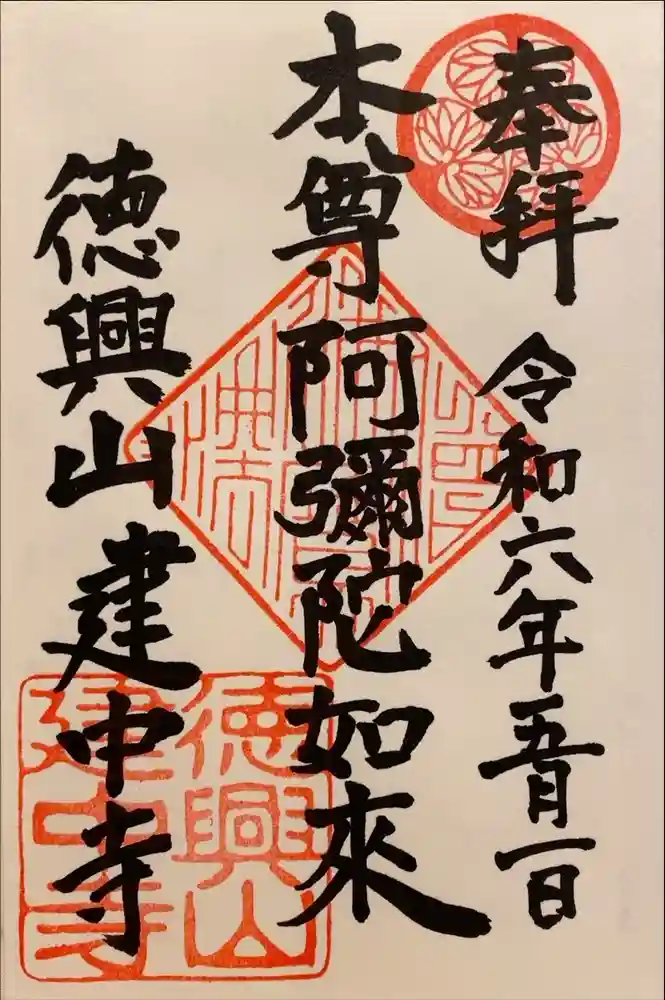 奉拝 令和六年五月一日
本尊阿彌陀如來
徳興山 建中寺
徳興山
建中寺